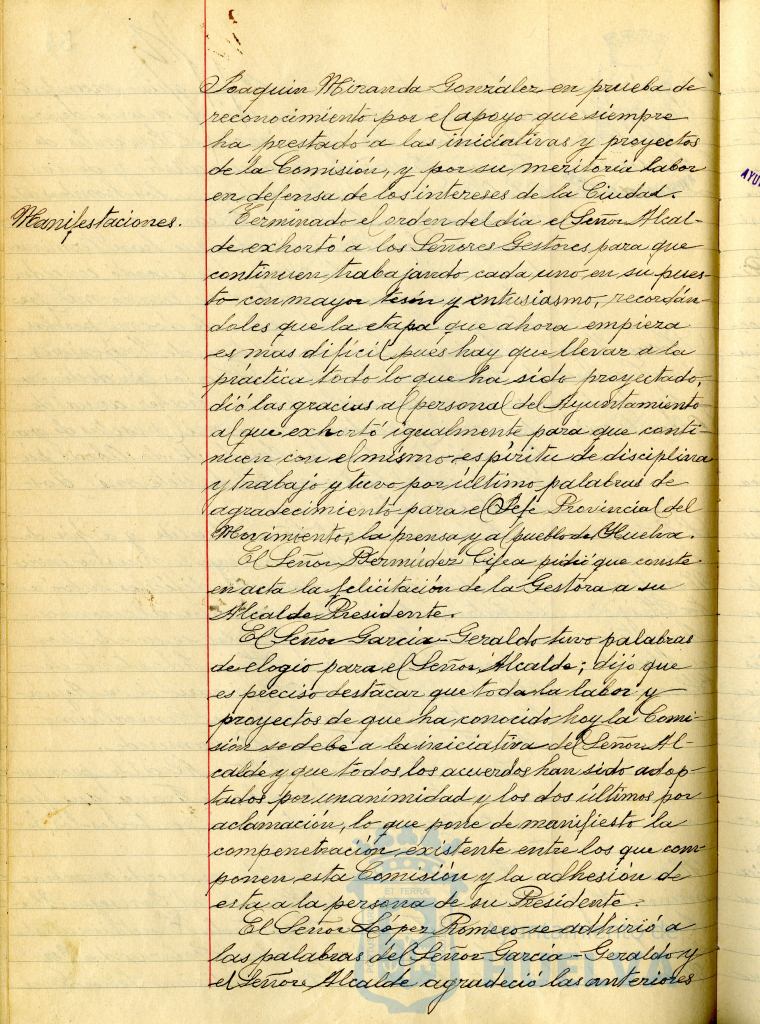 Joaquin Miranda González en prueba de
reconocimiento por el apoyo que siempre
ha prestado a las iniciativas y proyectos
de la Comisión, y por su meritoria labor
en defensa de los intereses de la Ciudad.
Manifestaciones.
Terminado el orden del dia el Señor Alcal-
de exhortó a los Señores Gestores para que
continuen trabajando cada uno en su pues-
to con mayor tesón y entusiasmo, recordán-
doles que la etapa que ahora empieza
es mas difícil pues hay que llevar a la
práctica todo lo que ha sido proyectado,
dió las gracias al personal del Ayuntamiento
al que exhortó igualmente para que conti-
nuen con el mismo espíritu de disciplina
y trabajo y tuvo por último palabras de
agradecimiento para el Jefe Provincial del
Movimiento, la prensa y al pueblo de Huelva.
El Señor Bermúdez Cifea pidió que conste
en acta la felicitación de la Gestora a su
Alcalde Presidente.
El Señor García-Geraldo tuvo palabras
de elogio para el Señor Alcalde; dijo que
es preciso destacar que toda la labor y
proyectos de que ha conocido hoy la Comi-
sión se debe a la iniciativa del Señor Al-
calde y que todos los acuerdos han sido adop-
tados por unanimidad y los dos últimos por
aclamación, lo que pone de manifiesto la
compenetración existente entre los que com-
ponen esta Comisión y la adhesión de
esta a la persona de su Presidente.
El Señor López Romero se adhirió a
las palabras del Señor García-Geraldo y
el Señor Alcalde agradeció las anteriores
ET TERRA
HUELVA
AYU